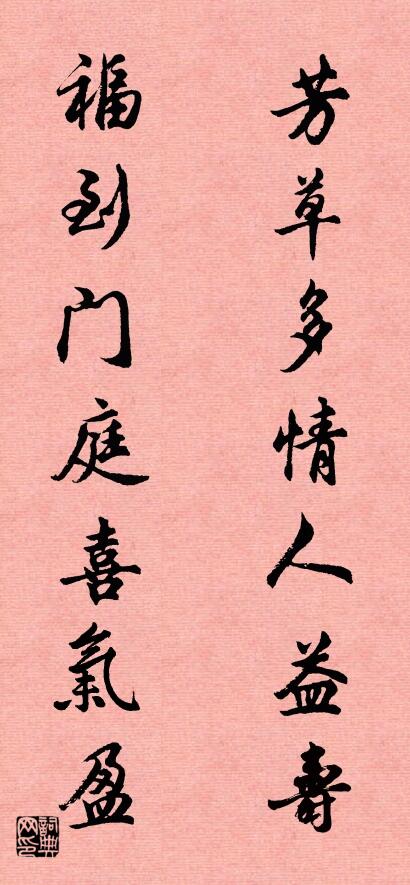 芳草多情人益壽
福到门庭喜氣盈
詞典网印